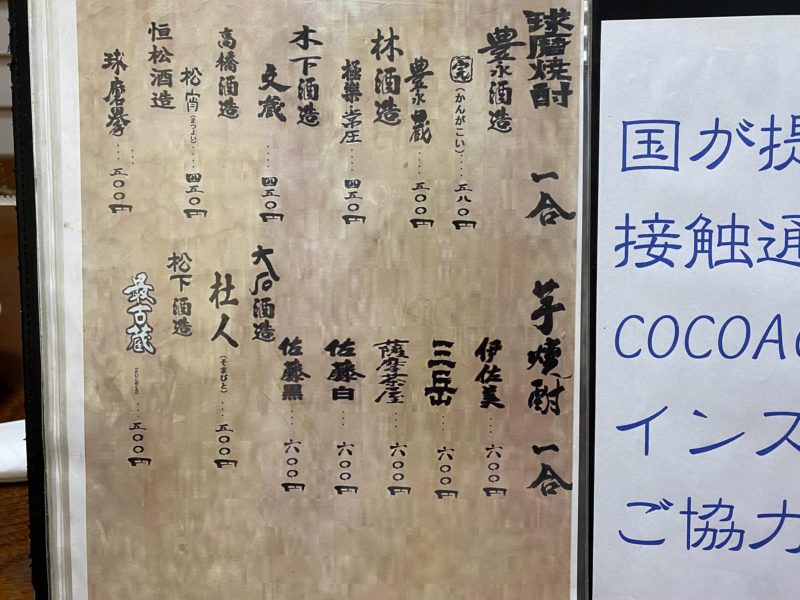 球磨焼酎 一合
豊永酒造
(かんがこい)‥‥五八〇円
豊永蔵‥‥五〇〇円
林酒造
極楽・常圧‥‥四五〇円
木下酒造
文蔵‥‥四五〇円
高橋酒造
松宵(まつよい)‥‥四五〇円
恒松酒造
球磨拳‥‥五〇〇円
大石酒造
杜人(そまびと)‥‥五〇〇円
松下酒造
最古蔵‥‥五〇〇円
芋焼酎 一合
伊佐美‥‥六〇〇円
三岳‥‥六〇〇円
薩摩茶屋‥‥六〇〇円
佐藤白‥‥六〇〇円
佐藤黒‥‥六〇〇円
国が提
接触通
COCOA
インス
ご協力